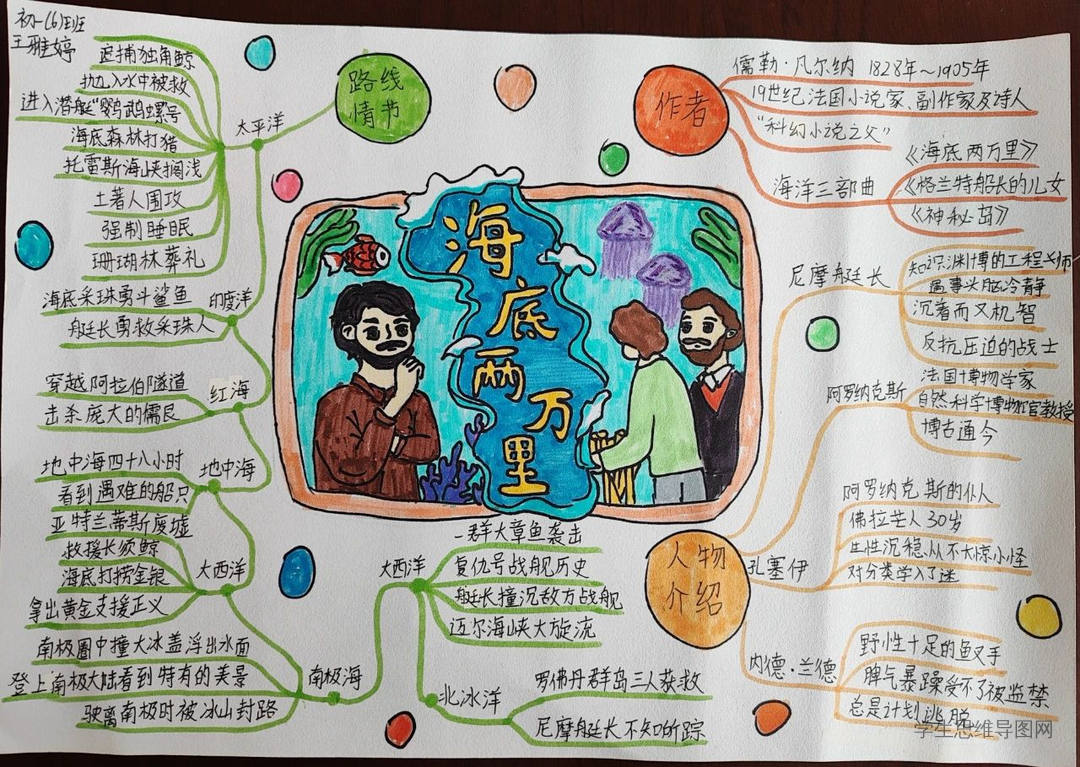 初一(6)班
王雅婷
路线
情节
太平洋
追捕独角鲸
抛入水中被救
进入潜艇"鹦鹉螺"号
海底森林打猎
托雷斯海峡搁浅
土著人围攻
强制睡眠
珊瑚林葬礼
印度洋
海底采珠勇斗鲨鱼
艇长勇救采珠人
红海
穿越阿拉伯隧道
击杀庞大的儒艮
地中海
地中海四十八小时
看到遇难的船只
大西洋
亚特兰蒂斯废墟
救援长须鲸
海底打捞金银
拿出黄金支援正义
南极海
南极圈中撞大冰盖浮出水面
登上南极大陆看到特有的美景
驶离南极时被冰山封路
大西洋
一群大章鱼袭击
复仇号战舰历史
艇长撞沉敌方战舰
迈尔海峡大旋流
北冰洋
罗佛丹群岛三人获救
尼摩艇长不知所踪
海底两万里
作者
儒勒·凡尔纳 1828年～1905年
19世纪法国小说家、副作家及诗人
"科幻小说之父"
海洋三部曲
《海底两万里》
《格兰特船长的儿女
《神秘岛》
人物
介绍
尼摩艇长
知识渊博的工程师
遇事头脑冷静
沉着而又机智
反抗压迫的战士
阿罗纳克斯
法国博物学家
自然科学博物馆教授
博古通今
孔塞伊
阿罗纳克斯的仆人
佛拉芒人30岁
生性沉稳、从不大惊小怪
对分类学入了迷
内德·兰德
野性十足的鱼叉手
脾气暴躁受不了被监禁
总是计划逃脱
学生思维导图网